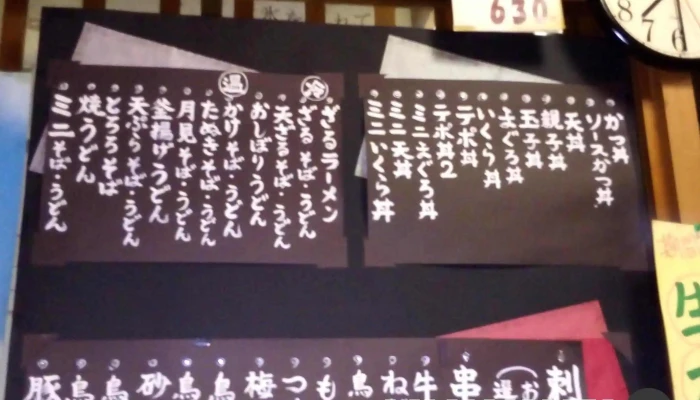 630
かつ丼
ソースかつ丼
天丼
親子丼
玉子丼
まぐろ丼
いくら丼
テポ丼
テポ丼2
ミニまぐろ丼
ミニ天丼
ミニいくら丼
ざるラーメン
冷 ざるそば・うどん
天ざるそば・うどん
おしぼりうどん
温 かけそば・うどん
たぬきそば・うどん
月見そば・うどん
釜揚げうどん
天ぷらそば・うどん
とろろそば
焼うどん
ミニそば・うどん
刺
串
牛
ね
鳥
も
つ
梅
鳥
鳥
砂
鳥
鳥
豚
生